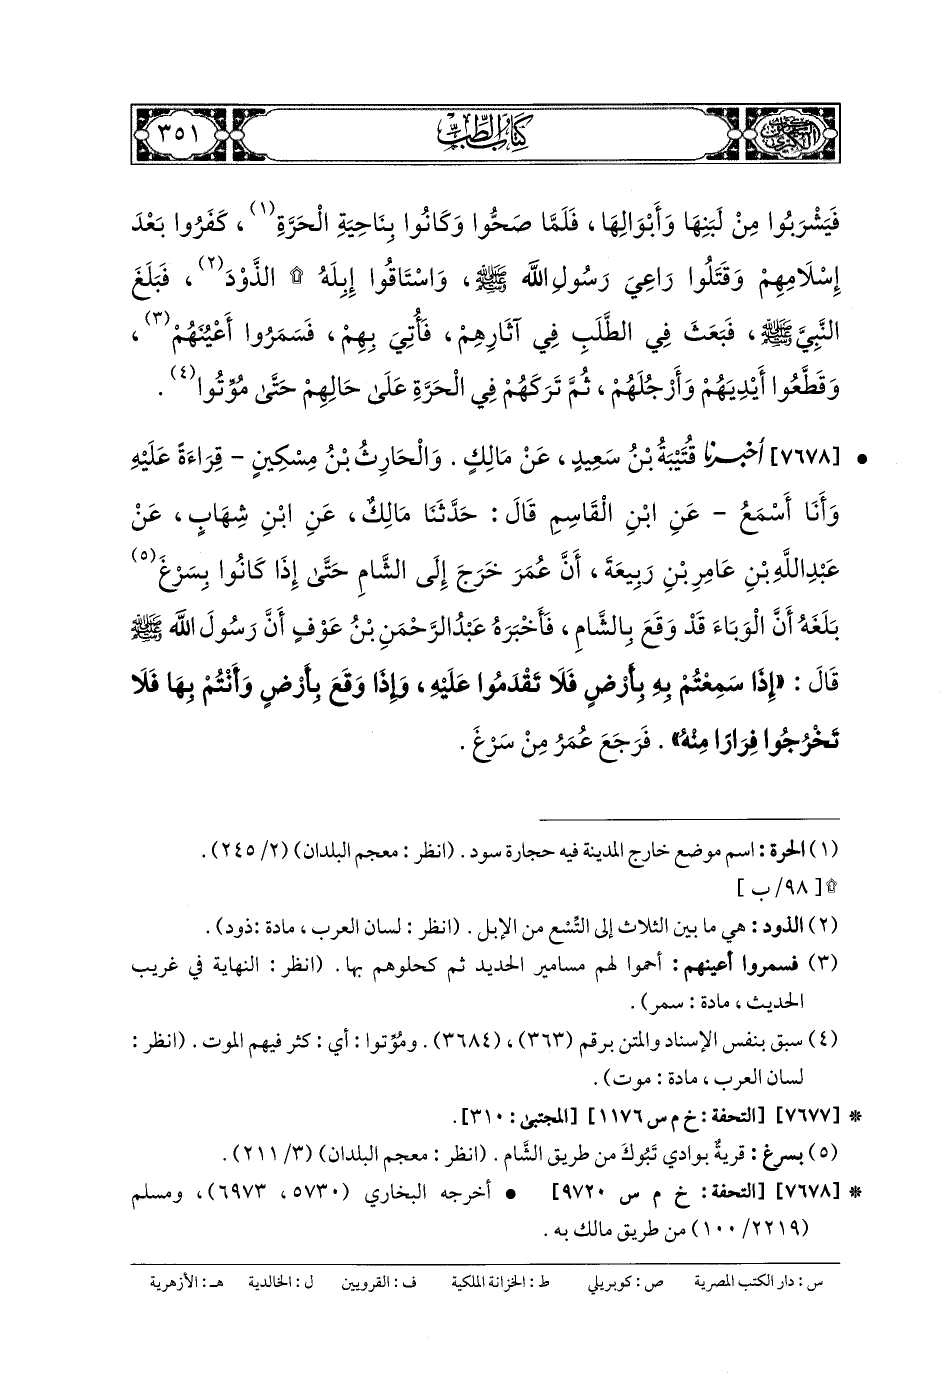 السنن الكبرى
كتاب الطب
٣٥١
فَيَشْرَبُوا مِنْ لَبَنِهَا وَأَبْوَالِهَا، فَلَمَّا صَحُّوا وَكَانُوا بِنَاحِيَةِ الْحَرَّةِ(١)، كَفَرُوا بَعْدَ
إِسْلَامِهِمْ وَقَتَلُوا رَاعِيَ رَسُولِ اللَّهِ ﷺ، وَاسْتَاقُوا إِبِلَهُ ۩ الذَّوْدَ(٢)، فَبَلَغَ
النَّبِيَّ ﷺ، فَبَعَثَ فِي الطَّلَبِ فِي آثَارِهِمْ، فَأُتِيَ بِهِمْ، فَسَمَرُوا أَعْيُنَهُمْ(٣)،
وَقَطَّعُوا أَيْدِيَهُمْ وَأَرْجُلَهُمْ، ثُمَّ تَرَكَهُمْ فِي الْحَرَّةِ عَلَىٰ حَالِهِمْ حَتَّىٰ مُوِّتُوا(٤).
• [٧٦٧٨] أَخْبَرَنَا قُتَيْبَةُ بْنُ سَعِيدٍ، عَنْ مَالِكٍ. وَالْحَارِثُ بْنُ مِسْكِينٍ - قِرَاءَةً عَلَيْهِ
وَأَنَا أَسْمَعُ - عَنِ ابْنِ الْقَاسِمِ قَالَ: حَدَّثَنَا مَالِكٌ، عَنِ ابْنِ شِهَابٍ، عَنْ
عَبْدِاللَّهِ بْنِ عَامِرِ بْنِ رَبِيعَةَ، أَنَّ عُمَرَ خَرَجَ إِلَى الشَّامِ حَتَّىٰ إِذَا كَانُوا بِسَرْغَ(٥)
بَلَغَهُ أَنَّ الْوَبَاءَ قَدْ وَقَعَ بِالشَّامِ، فَأَخْبَرَهُ عَبْدُالرَّحْمَنِ بْنُ عَوْفٍ أَنَّ رَسُولَ اللَّهِ ﷺ
قَالَ: «إِذَا سَمِعْتُمْ بِهِ بِأَرْضٍ فَلَا تَقْدَمُوا عَلَيْهِ، وَإِذَا وَقَعَ بِأَرْضٍ وَأَنْتُمْ بِهَا فَلَا
تَخْرُجُوا فِرَارًا مِنْهُ». فَرَجَعَ عُمَرُ مِنْ سَرْغَ.
(١) الحرة: اسم موضع خارج المدينة فيه حجارة سود. (انظر: معجم البلدان) (٢/ ٢٤٥).
۩ [٩٨/ ب]
(٢) الذود: هي ما بين الثلاث إلى التِّسْع من الإبل. (انظر: لسان العرب، مادة: ذود).
(٣) فسمروا أعينهم: أحموا لهم مسامير الحديد ثم كحلوهم بها. (انظر: النهاية في غريب
الحديث، مادة: سمر).
(٤) سبق بنفس الإسناد والمتن برقم (٣٦٣)، (٣٦٨٤). ومُوِّتوا: أي: كثر فيهم الموت. (انظر:
لسان العرب، مادة: موت).
* [٧٦٧٧] [التحفة: خ م س ١١٧٦] [المجتبىٰ: ٣١٠].
(٥) بسرغ: قريةٌ بوادي تَبُوكَ من طريق الشَّام. (انظر: معجم البلدان) (٣/ ٢١١).
* [٧٦٧٨] [التحفة: خ م س ٩٧٢٠] • أخرجه البخاري (٥٧٣٠، ٦٩٧٣)، ومسلم
(٢٢١٩/ ١٠٠) من طريق مالك به.
س: دار الكتب المصرية ص: كوبريلي ط: الخزانة الملكية ف: القرويين ل: الخالدية هـ: الأزهرية